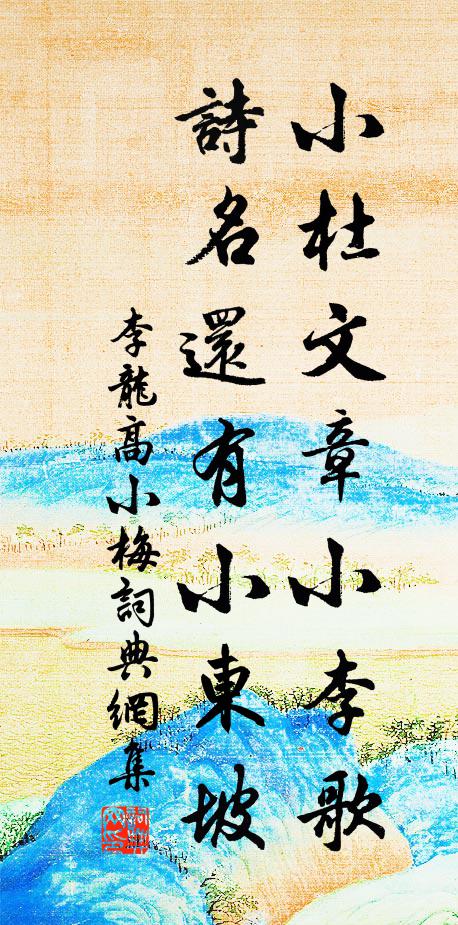 小杜文章小李歌
詩名還有小東坡
李龍高小梅詞典網集